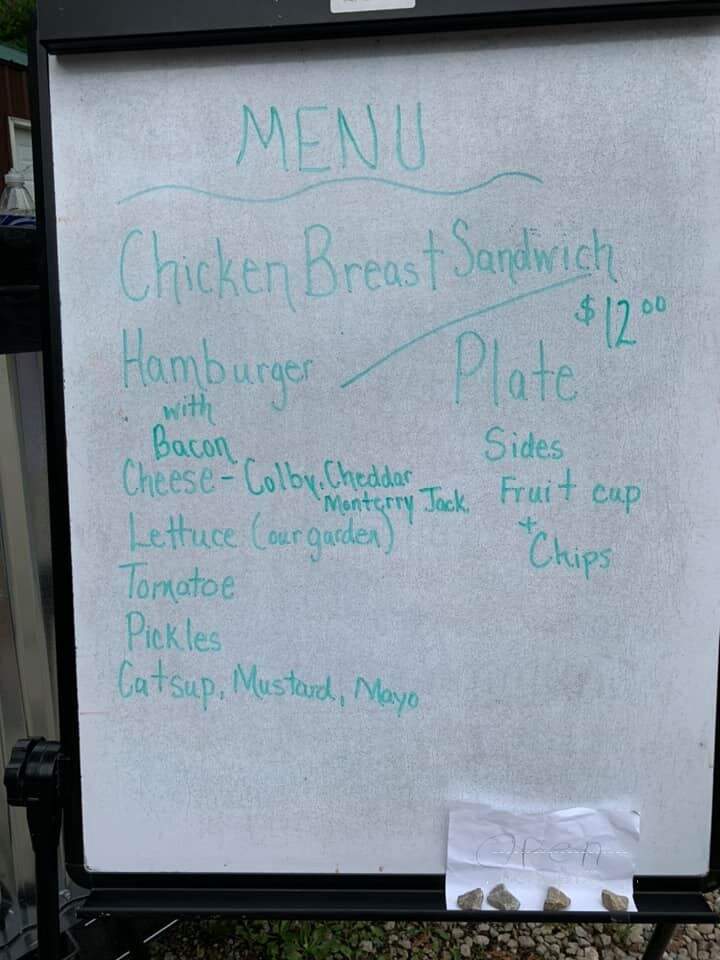 MENU
Chicken Breast Sandwich
$12.00
Hamburger / Plate
with
Bacon
Cheese - Colby, Cheddar
Monterry Jack
Lettuce (our garden)
Tomatoe
Pickles
Catsup, Mustard, Mayo
Sides
Fruit cup
+
Chips
Open